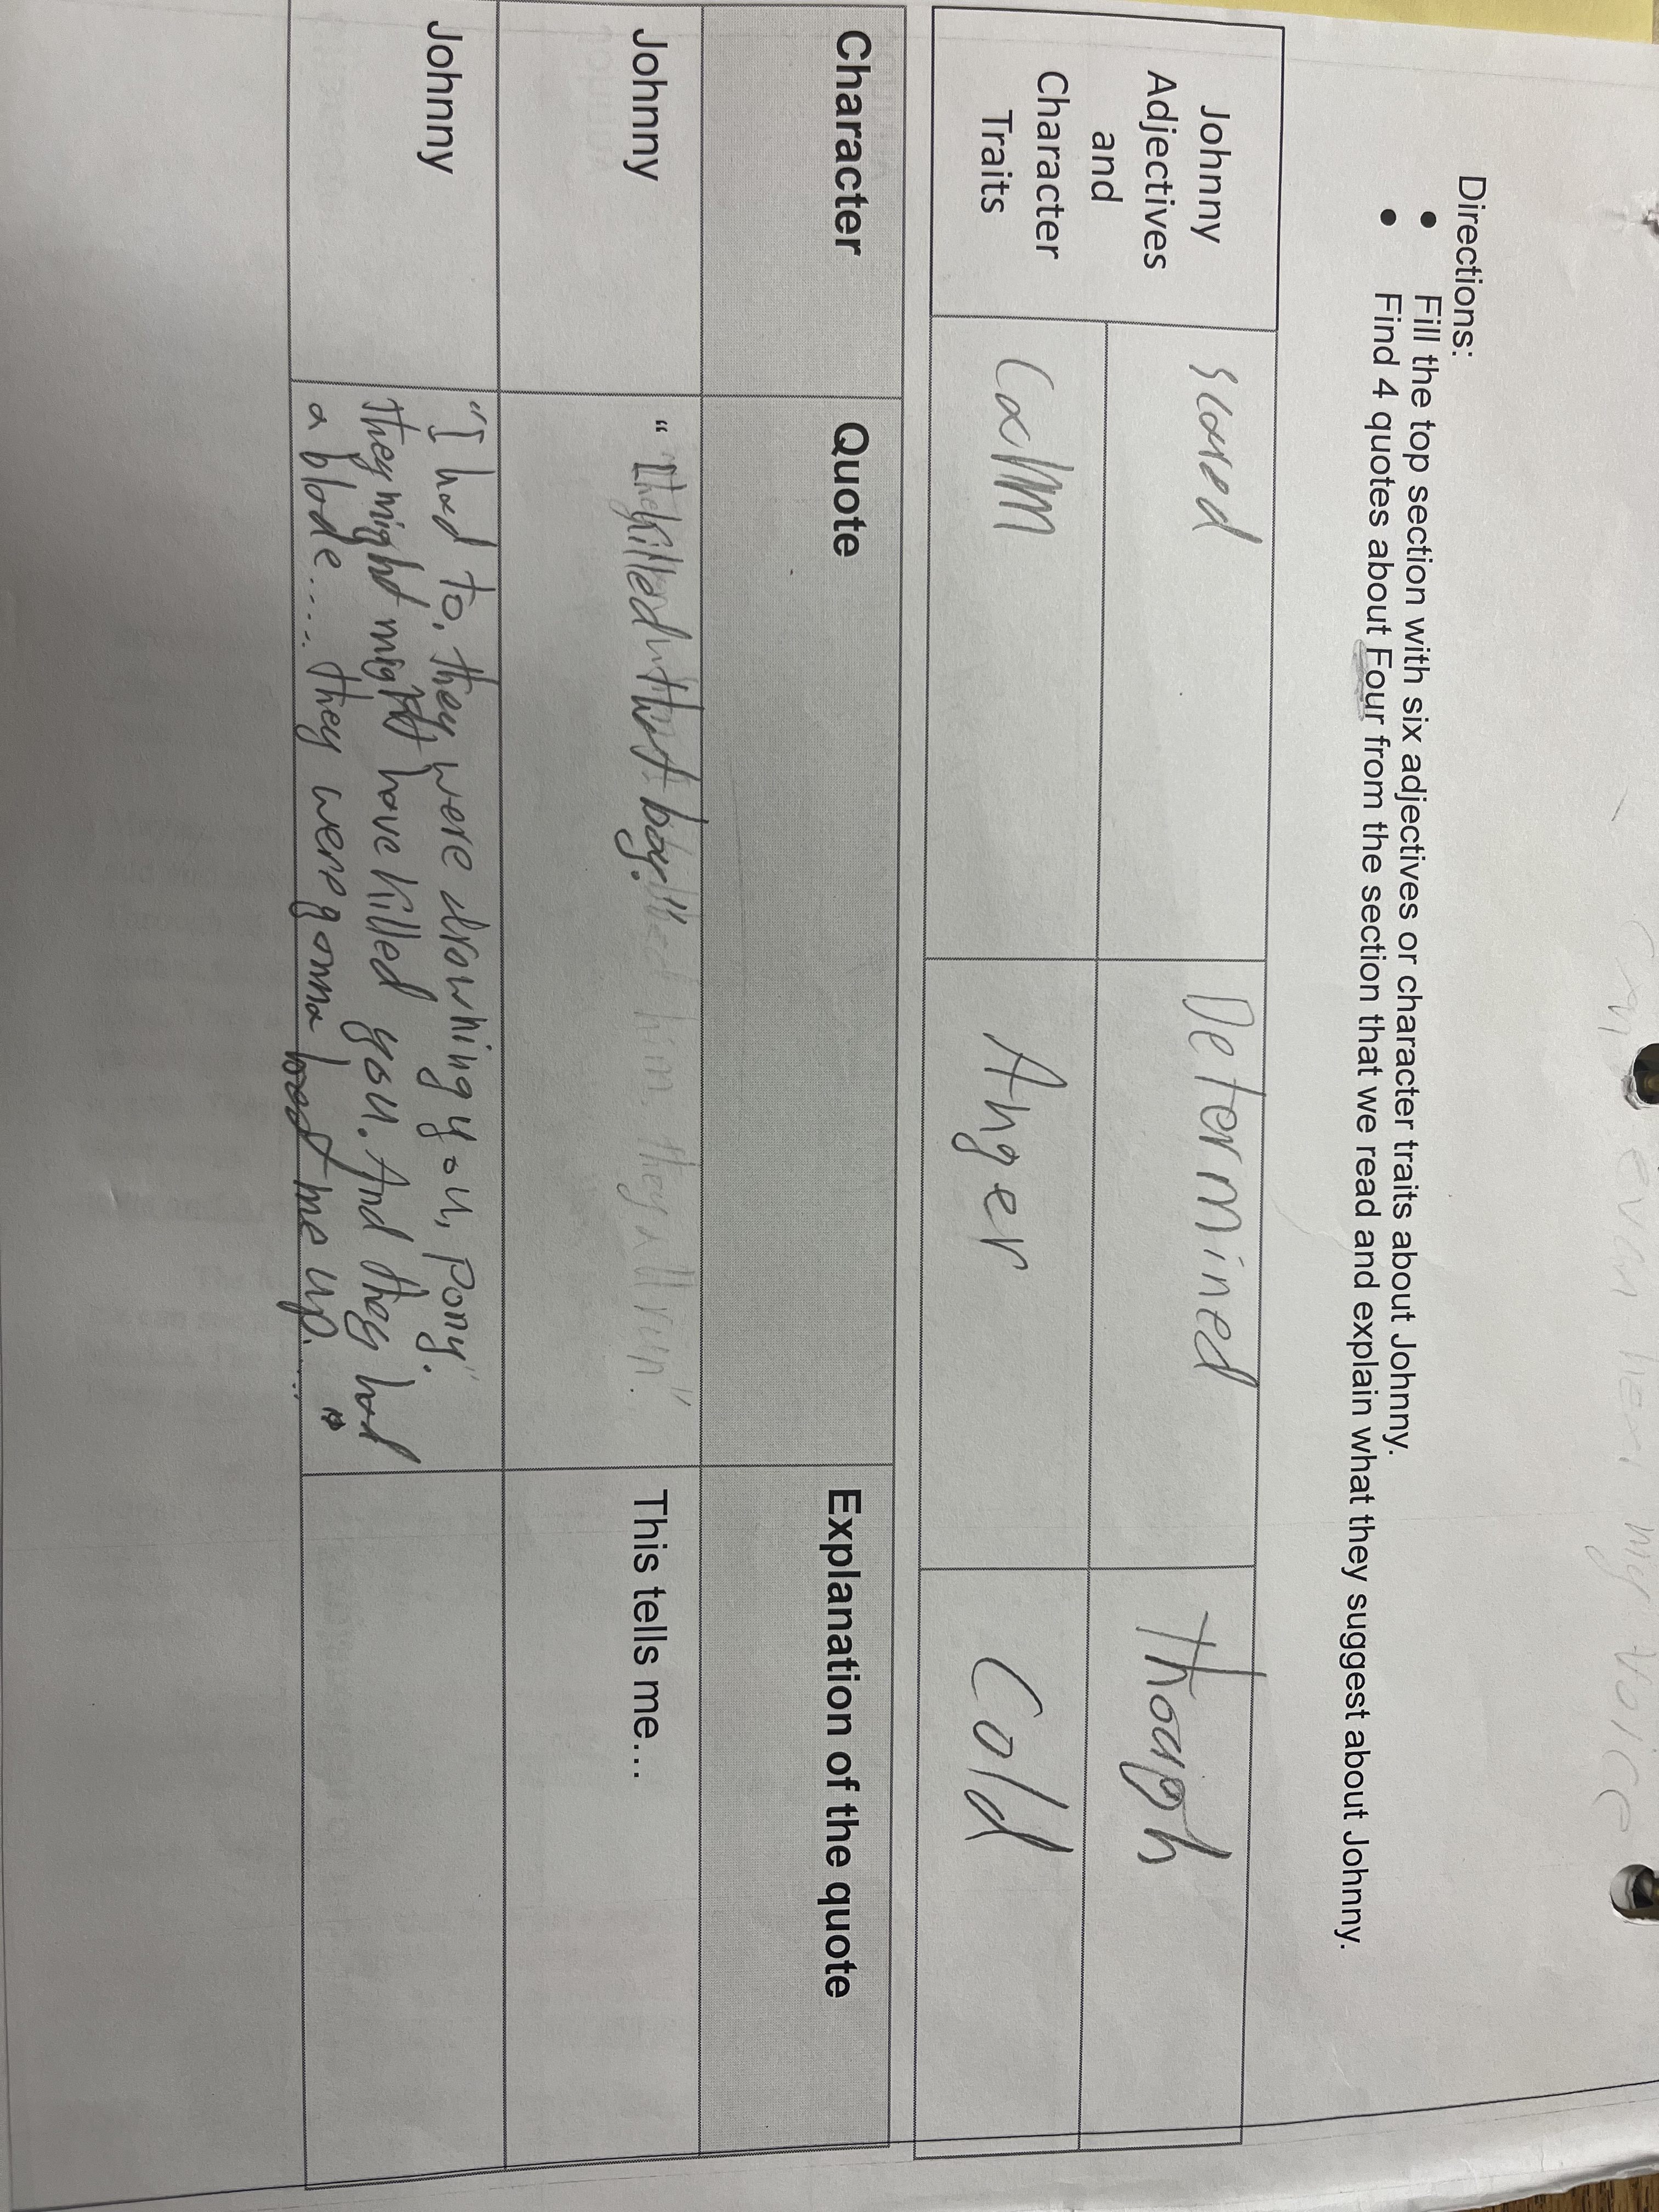 even my voice
Directions:
• Fill the top section with six adjectives or character traits about Johnny.
• Find 4 quotes about Four from the section that we read and explain what they suggest about Johnny.
Johnny
Adjectives
and
Character
Traits
scared
Determined
though
Calm
Anger
Cold
Character
Quote
Explanation of the quote
Johnny
“ I killed that boy." him. they all run".
This tells me...
Johnny
"I had to. they were drowning you, Pony."
they might might have killed you. And they had
a blade..... they were gonna beat me up. ...."